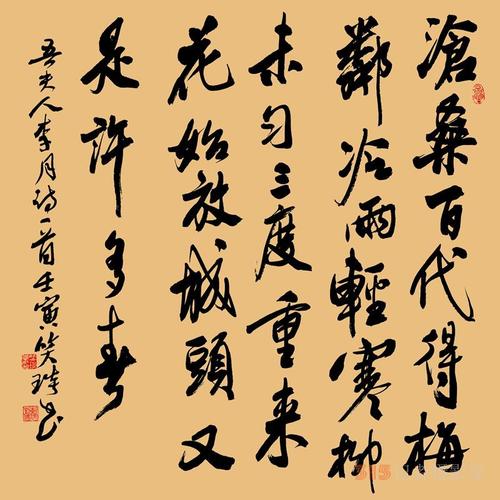 滄桑百代得梅
鄰冷雨輕寒柳
未匀三度重来
花始放城頭又
是許多春
吾夫人李月詩一首壬寅笑